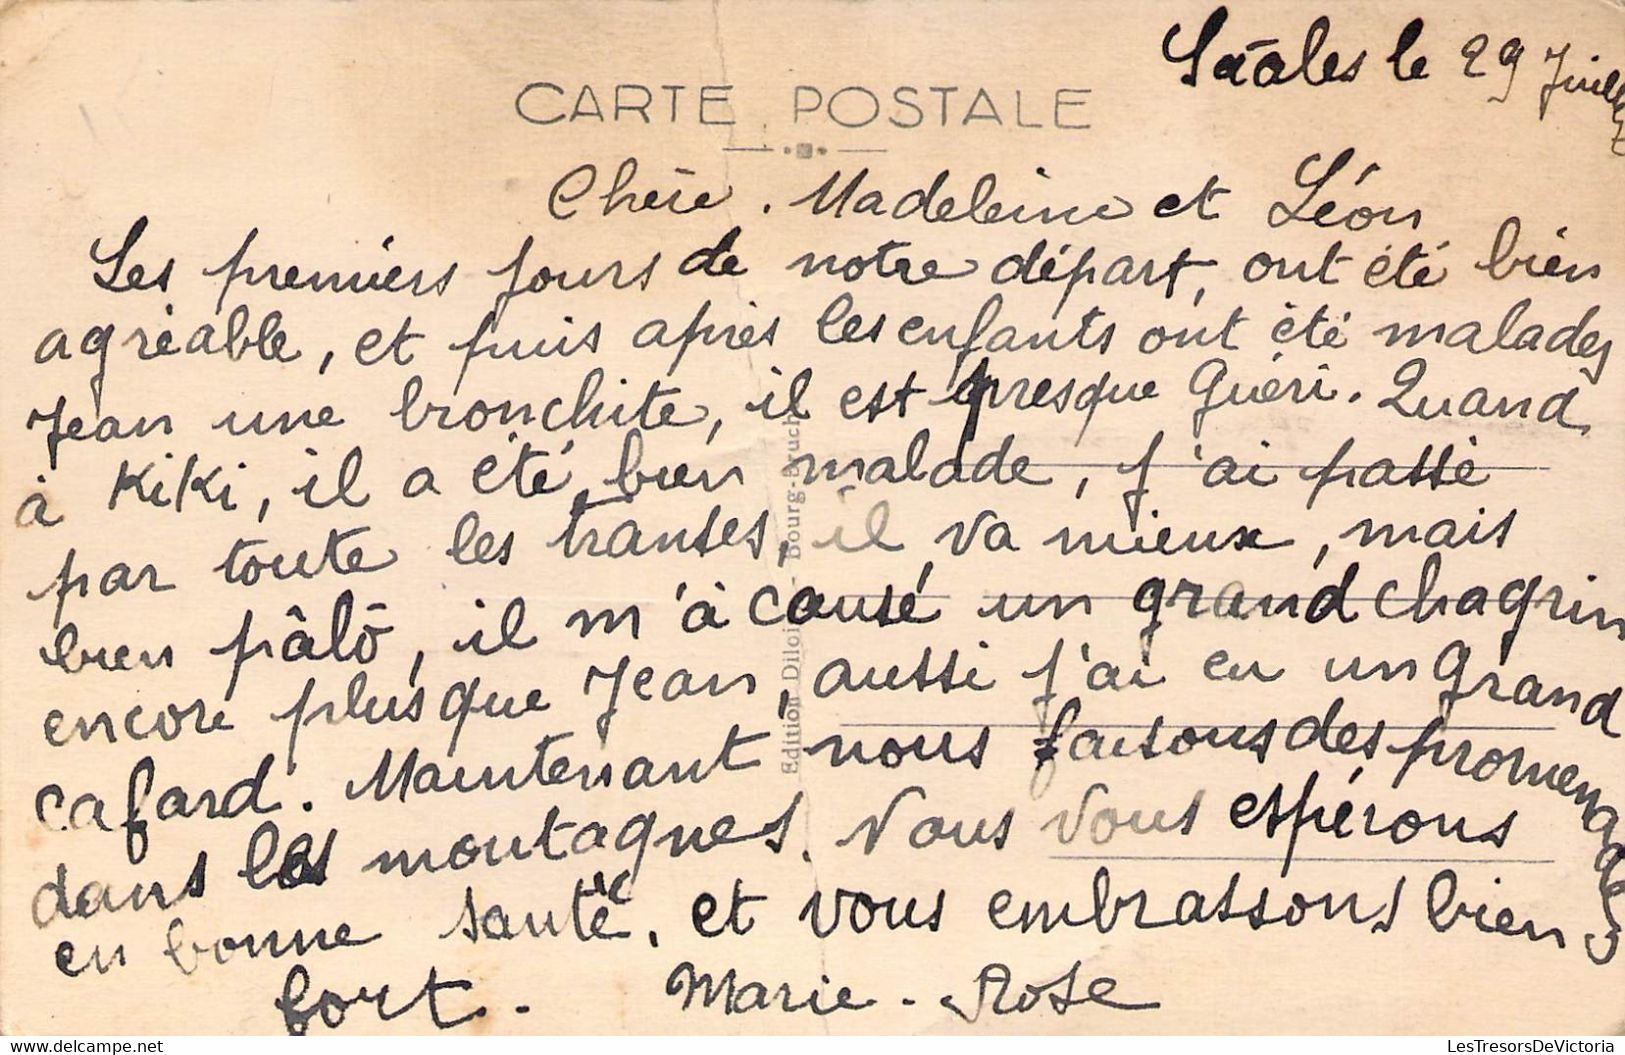 Saâles le 29 Juillet
CARTE POSTALE
Chère. Madeleine et Léon
Les premiers jours de notre départ, ont été bien
agréable, et puis après les enfants ont été malades
Jean une bronchite, il est presque Guéri. Quand
à KiKi, il a été bien malade, j'ai passé
par toute les transes, il va mieux, mais
bien pâlô, il m'à causé un grand chagrin
encore plus que Jean, aussi j'ai eu un grand
cafard. Maintenant nous faisons des promenades
dans les montagnes. Nous vous espérons
en bonne santé, et vous embrassons bien
fort. Marie-Rose
Edition Diloi - Bourg-Bruche
LesTresorsDeVictoria.com
LesTresorsDeVictoria